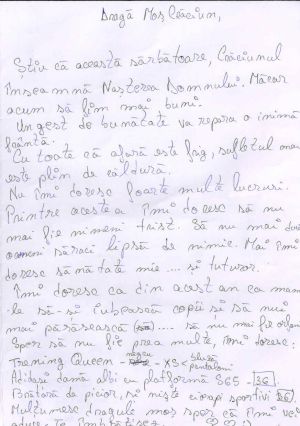 Dragă Moș Crăciun,
Știu că această sărbătoare, Crăciunul
înseamnă Nașterea Domnului. Măcar
acum să fim mai buni.
Un gest de bunătate va repara o inimă
frântă.
Cu toate că afară este frig, sufletul meu
este plin de căldură.
Nu îmi doresc foarte multe lucruri.
Printre acestea îmi doresc să nu
mai fie nimeni trist. Să nu mai ducă
oamenii săraci lipsă de nimic. Mai îmi
doresc sănătate mie .... și tuturor.
Îmi doresc ca din acest an ca mame
le să-și iubească copii și să nu-i
mai părăsească .... să nu mai fie orfani
Sper să nu fie prea multe, îmi doresc:
Trening Queen - negru XS bluză
pantaloni
Adidași damă albi cu platformă S65 - 36
Brățară de picior, și niște ciorapi sportivi 36.
Mulțumesc dragule moș sper că îmi vei